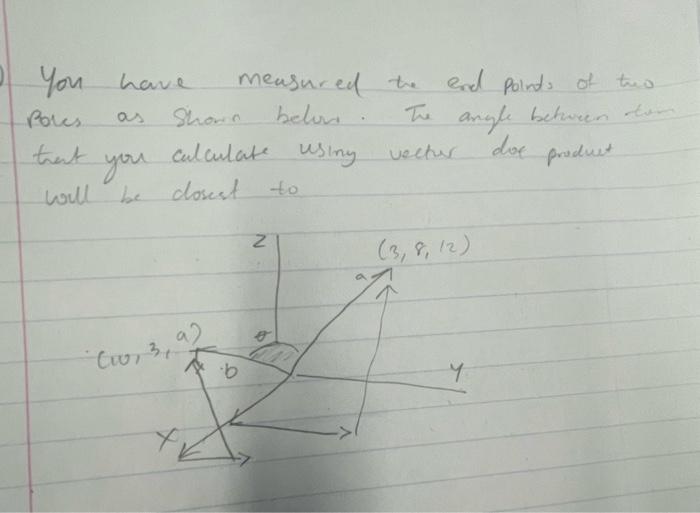 You have measured the end points of two
Poles as Shown below. The angle between them
that you calculate using vector dot product
will be closest to
Z
(3, 8, 12)
a
θ
(10, 3, a)
b
Y
X